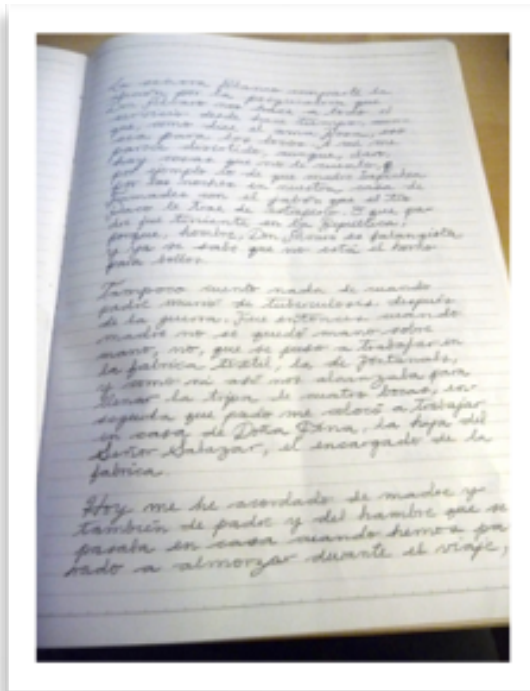 La señora Blanca comparte la
afición por la psiquiatría que
Don Álvaro nos hace a todo el
servicio desde hace tiempo, aunque
que, como dice el ama Rosa, eso
sea para los locos. A mí me
parece divertido, aunque, claro,
hay cosas que no le cuento,
por ejemplo lo de que madre
por las noches en nuestra casa de
con el jabón que el tío
Paco le trae de estraperlo. O que pa-
dre fue teniente en la República,
porque, hombre, Don Álvaro es falangista
y ya se sabe que no está el horno
para bollos.
Tampoco cuento nada de cuando
padre murió de tuberculosis después
de la guerra. Fue entonces cuando
madre no se quedó mano sobre
mano, no, que se puso a trabajar en
la fábrica textil, la de Fontanals,
y como ni así nos alcanzaba para
llenar la tripa de cuatro bocas, en
seguida que pudo me colocó a trabajar
en casa de Doña Pena, la hija del
Señor Salazar, el encargado de la
fábrica.
Hoy me he acordado de madre y
también de padre y del hambre que se
pasaba en casa cuando hemos pa
rado a almorzar durante el viaje,